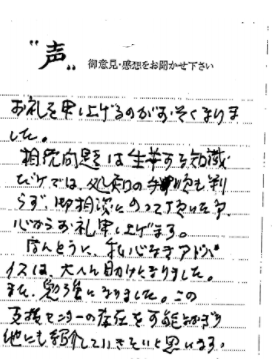 "声"
御意見・感想をお聞かせ下さい
お礼を申し上げるのがおそくなりま
した。
相続問題は生半可な知識
だけでは、処理の手順も判
らず、御相談にのって頂いた事
心からお礼申し上げます。
ほんとうに、私心なきアドバ
イスは、大へん助けとなりました。
また、勉強になりました。この
支援センターの存在を可能なかぎり
他にも紹介していきたいと思います。